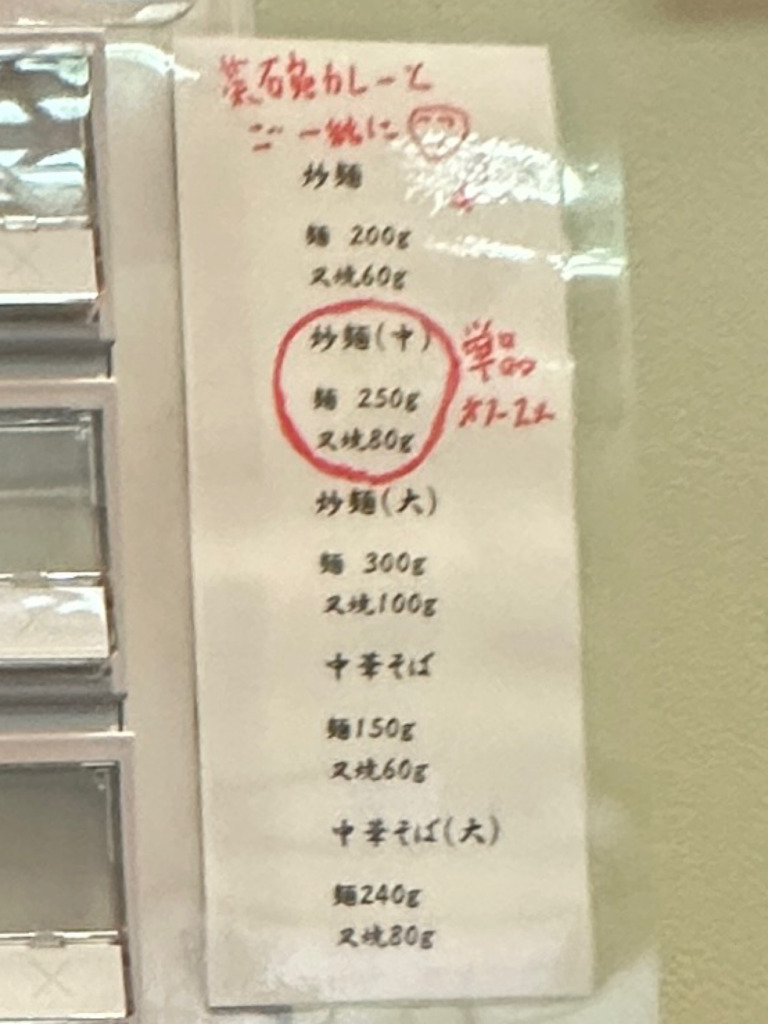 カレーと
ご一緒に
炒麺
麺 200g
叉焼60g
炒麺(中)
麺 250g
叉焼80g
単品
オススメ
炒麺(大)
麺 300g
叉焼100g
中華そば
麺150g
叉焼60g
中華そば(大)
麺240g
叉焼80g